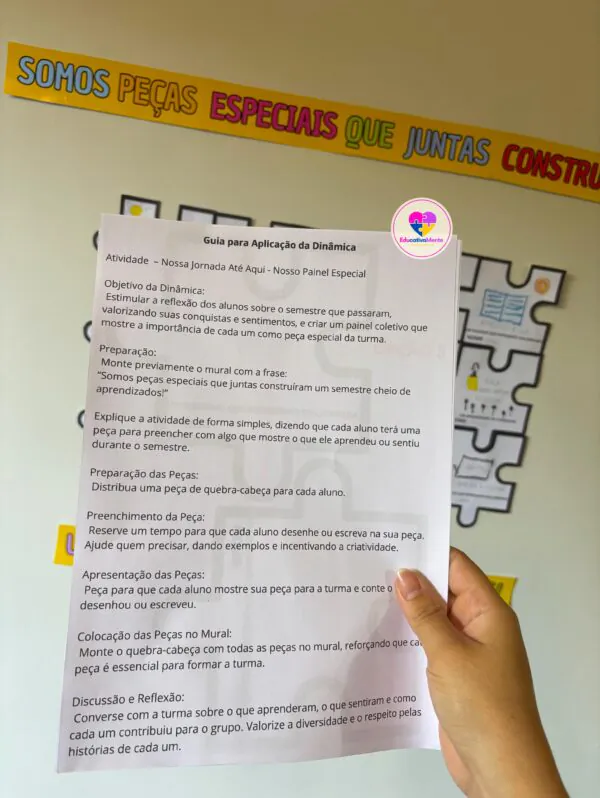 SOMOS PEÇAS ESPECIAIS QUE JUNTAS CONSTRU
EducativaMente
Guia para Aplicação da Dinâmica
Atividade – Nossa Jornada Até Aqui - Nosso Painel Especial
Objetivo da Dinâmica:
Estimular a reflexão dos alunos sobre o semestre que passaram,
valorizando suas conquistas e sentimentos, e criar um painel coletivo que
mostre a importância de cada um como peça especial da turma.
Preparação:
Monte previamente o mural com a frase:
"Somos peças especiais que juntas construíram um semestre cheio de
aprendizados!"
Explique a atividade de forma simples, dizendo que cada aluno terá uma
peça para preencher com algo que mostre o que ele aprendeu ou sentiu
durante o semestre.
Preparação das Peças:
Distribua uma peça de quebra-cabeça para cada aluno.
Preenchimento da Peça:
Reserve um tempo para que cada aluno desenhe ou escreva na sua peça.
Ajude quem precisar, dando exemplos e incentivando a criatividade.
Apresentação das Peças:
Peça para que cada aluno mostre sua peça para a turma e conte o
desenhou ou escreveu.
Colocação das Peças no Mural:
Monte o quebra-cabeça com todas as peças no mural, reforçando que ca
peça é essencial para formar a turma.
Discussão e Reflexão:
Converse com a turma sobre o que aprenderam, o que sentiram e como
cada um contribuiu para o grupo. Valorize a diversidade e o respeito pelas
histórias de cada um.